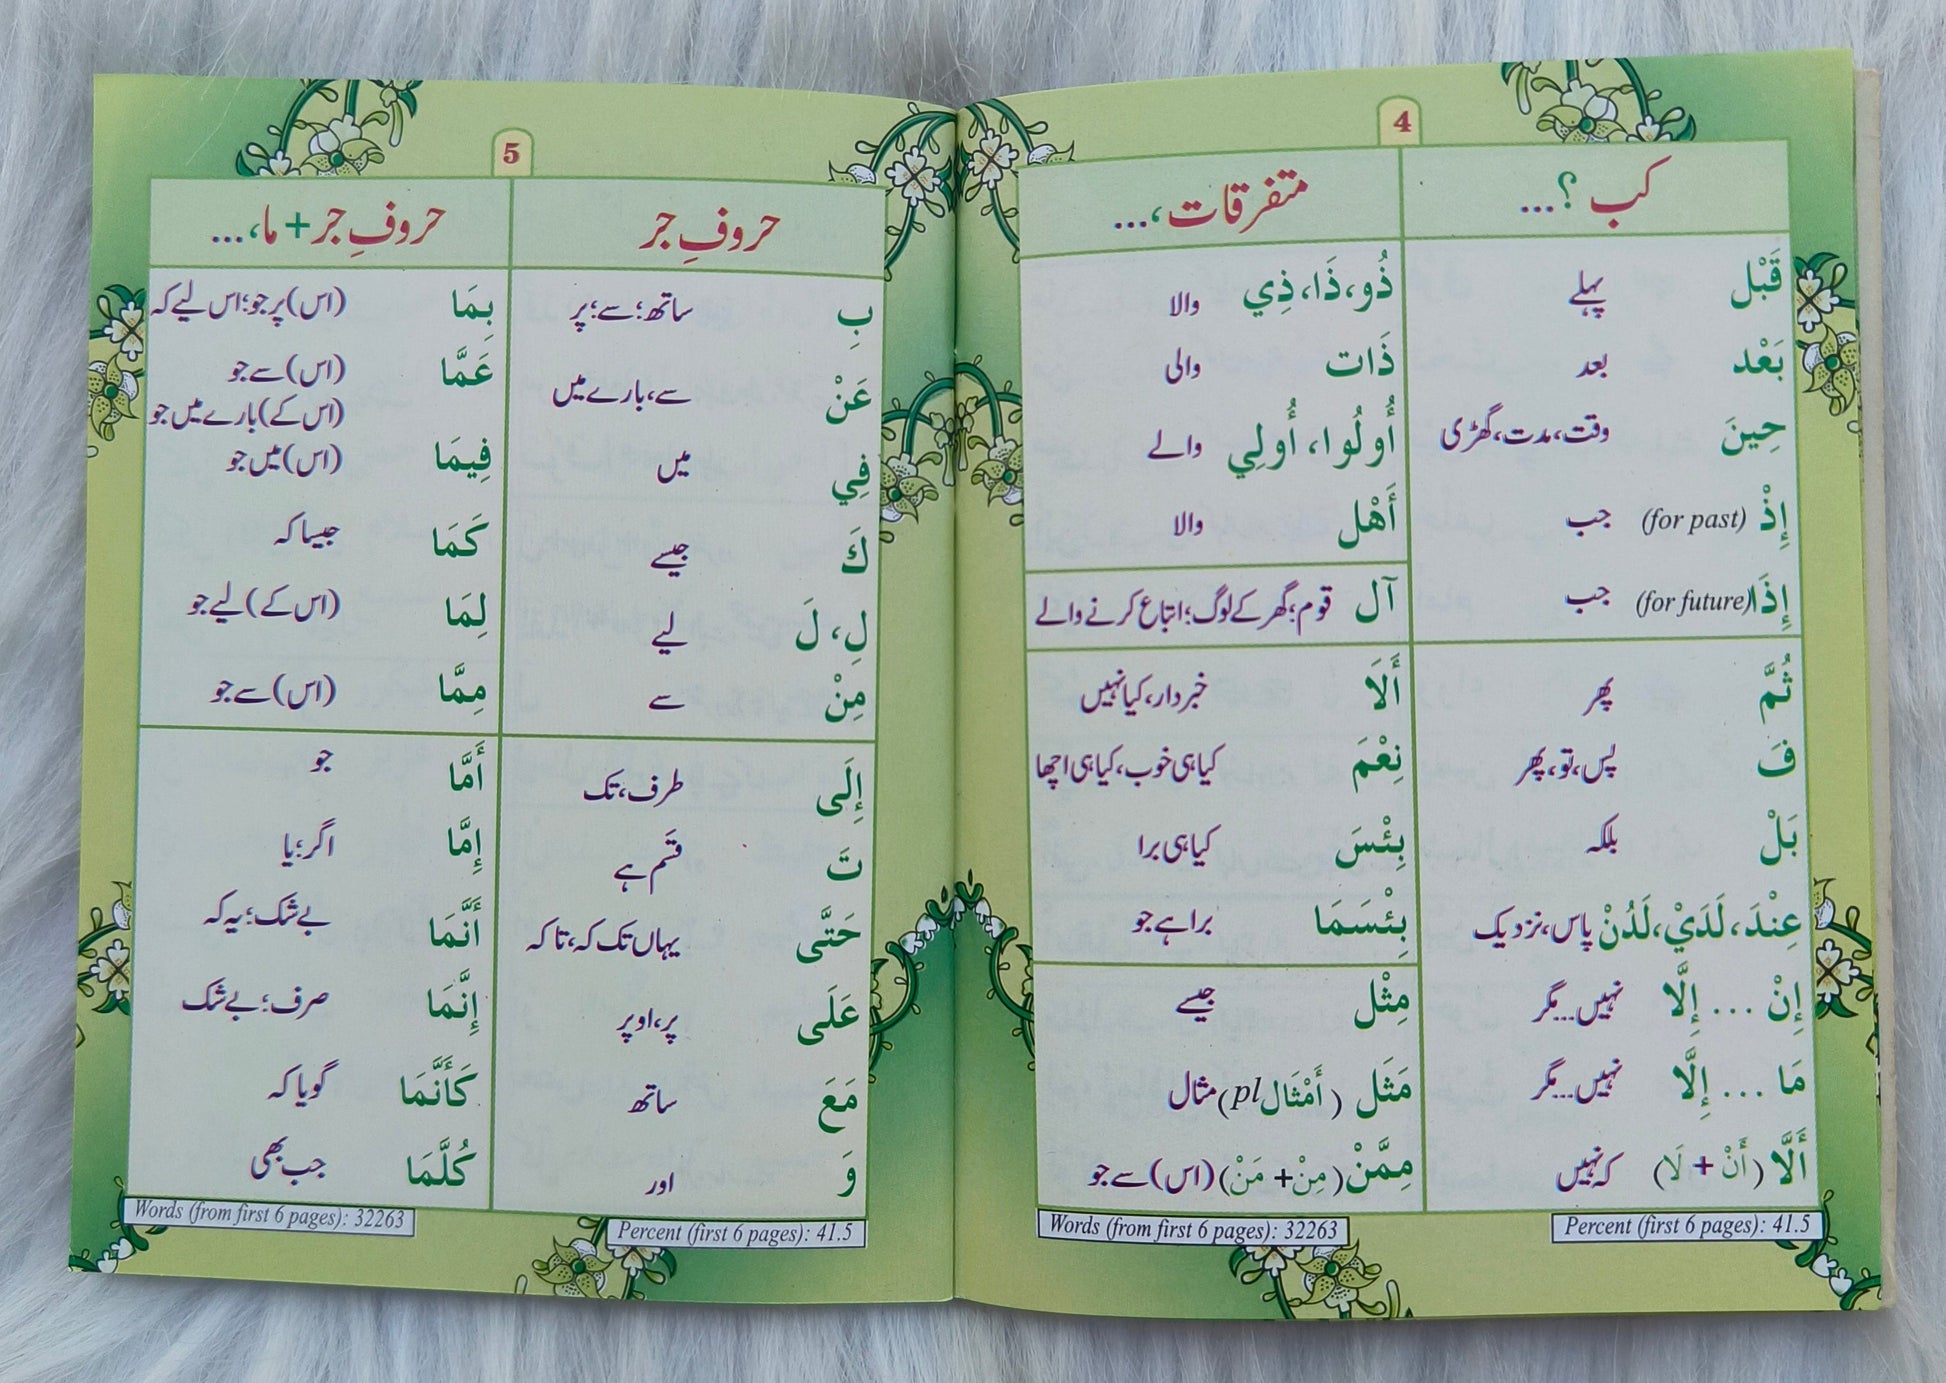 4
کب ؟...
قَبْل پہلے
بَعْد بعد
حِينَ وقت، مدت، گھڑی
إِذْ (for past) جب
إِذَا (for future) جب
ثُمَّ پھر
فَ پس، تو، پھر
بَلْ بلکہ
عِنْدَ، لَدَيْ، لَدُنْ پاس، نزدیک
إِنْ ... إِلَّا نہیں...مگر
مَا ... إِلَّا نہیں...مگر
أَلَّا (أَنْ + لَا) کہ نہیں
متفرقات،...
ذُو، ذَا، ذِي والا
ذَات والی
أُولُوا، أُولِي والے
أَهْل والا
آل قوم؛ گھر کے لوگ؛ اتباع کرنے والے
أَلَا خبردار، کیا نہیں
نِعْمَ کیا ہی خوب، کیا ہی اچھا
بِئْسَ کیا ہی برا
بِئْسَمَا برا ہے جو
مِثْل جیسے
مَثَل (أَمْثَال pl) مثال
مِمَّنْ (مِنْ + مَنْ) (اس) سے جو
Words (from first 6 pages): 32263
Percent (first 6 pages): 41.5
5
حروفِ جر
بِ ساتھ؛ سے؛ پر
عَنْ سے، بارے میں
فِي میں
كَ جیسے
لِ، لَ لیے
مِنْ سے
إِلَى طرف، تک
تَ قسم ہے
حَتَّى یہاں تک کہ، تا کہ
عَلَى پر، اوپر
مَعَ ساتھ
وَ اور
حروفِ جر + ما،...
بِمَا (اس) پر جو؛ اس لیے کہ
عَمَّا (اس) سے جو
(اس کے) بارے میں جو
فِيمَا (اس) میں جو
كَمَا جیسا کہ
لِمَا (اس کے) لیے جو
مِمَّا (اس) سے جو
أَمَّا جو
إِمَّا اگر؛ یا
أَنَّمَا بے شک؛ یہ کہ
إِنَّمَا صرف؛ بے شک
كَأَنَّمَا گویا کہ
كُلَّمَا جب بھی
Words (from first 6 pages): 32263
Percent (first 6 pages): 41.5